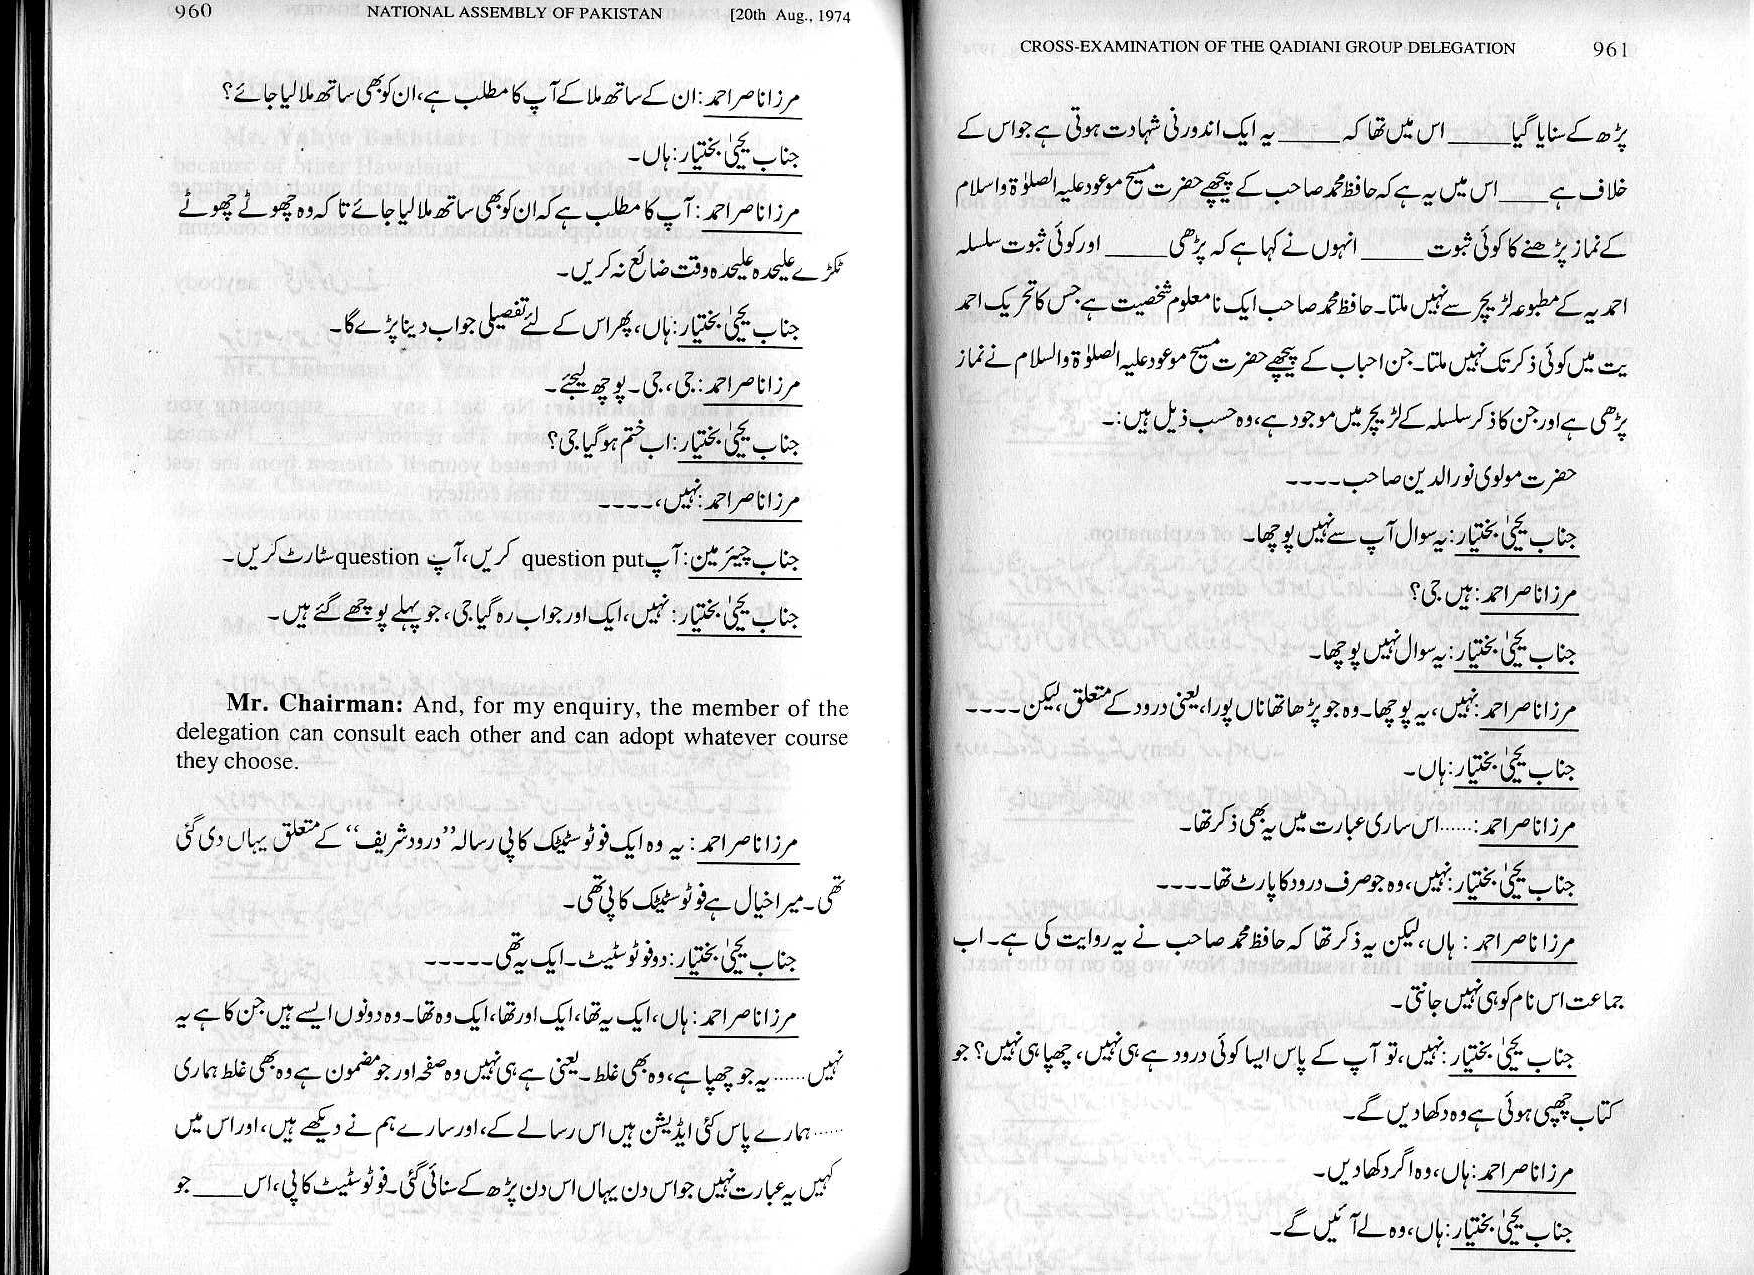 960 NATIONAL ASSEMBLY OF PAKISTAN [20th Aug., 1974
مرزا ناصر احمد: ان کے ساتھ ملا کے آپ کا مطلب ہے، ان کو بھی ساتھ ملا لیا جائے؟
جناب یحییٰ بختیار: ہاں۔
مرزا ناصر احمد: آپ کا مطلب ہے کہ ان کو بھی ساتھ ملا لیا جائے تاکہ وہ چھوٹے چھوٹے
ٹکڑے علیحدہ علیحدہ وقت ضائع نہ کریں۔
جناب یحییٰ بختیار: ہاں، پھر اس کے لئے تفصیلی جواب دینا پڑے گا۔
مرزا ناصر احمد: جی، جی۔ پوچھ لیجئے۔
جناب یحییٰ بختیار: اب ختم ہو گیا جی؟
مرزا ناصر احمد: نہیں، ۔۔۔۔
جناب چیئرمین: آپ question put کریں، آپ question سٹارٹ کریں۔
جناب یحییٰ بختیار: نہیں، ایک اور جواب رہ گیا جی، جو پہلے پوچھے گئے ہیں۔
Mr. Chairman: And, for my enquiry, the member of the
delegation can consult each other and can adopt whatever course
they choose.
مرزا ناصر احمد: یہ وہ ایک فوٹو سٹیٹک کاپی رسالہ ”درود شریف“ کے متعلق یہاں دی گئی
تھی۔ میرا خیال ہے فوٹو سٹیٹک کاپی تھی۔
جناب یحییٰ بختیار: دو فوٹو سٹیٹ۔ ایک یہ تھی۔۔۔۔۔
مرزا ناصر احمد: ہاں، ایک یہ تھا، ایک اور تھا، ایک وہ تھا۔ وہ دونوں ایسے ہیں جن کا ہے یہ
نہیں ...... یہ جو چھپا ہے، وہ بھی غلط۔ یعنی ہے ہی نہیں وہ صفحہ اور جو مضمون ہے وہ بھی غلط ہماری
...... ہمارے پاس کئی ایڈیشن ہیں اس رسالے کے، اور سارے ہم نے دیکھے ہیں، اور اس میں
کہیں یہ عبارت نہیں جو اس دن یہاں اس دن پڑھ کے سنائی گئی۔ فوٹو سٹیٹ کاپی، اس ____ جو
CROSS-EXAMINATION OF THE QADIANI GROUP DELEGATION 961
پڑھ کے سنایا گیا ____ اس میں تھا کہ ____ یہ ایک اندورنی شہادت ہوتی ہے جو اس کے
خلاف ہے ____ اس میں یہ ہے کہ حافظ محمد صاحب کے پیچھے حضرت مسیح موعود علیہ الصلوٰۃ واسلام
کے نماز پڑھنے کا کوئی ثبوت ____ انہوں نے کہا ہے کہ پڑھی ____ اور کوئی ثبوت سلسلہ
احمدیہ کے مطبوعہ لڑیچر سے نہیں ملتا۔ حافظ محمد صاحب ایک نامعلوم شخصیت ہے جس کا تحریک احمد
یت میں کوئی ذکر تک نہیں ملتا۔ جن احباب کے پیچھے حضرت مسیح موعود علیہ الصلوٰۃ والسلام نے نماز
پڑھی ہے اور جن کا ذکر سلسلہ کے لڑیچر میں موجود ہے، وہ حسب ذیل ہیں:۔
حضرت مولوی نورالدین صاحب۔۔۔۔
جناب یحییٰ بختیار: یہ سوال آپ سے نہیں پوچھا۔
مرزا ناصر احمد: ہیں جی؟
جناب یحییٰ بختیار: یہ سوال نہیں پوچھا۔
مرزا ناصر احمد: نہیں، یہ پوچھا۔ وہ جو پڑھا تھا ناں پورا، یعنی درود کے متعلق، لیکن۔۔۔۔
جناب یحییٰ بختیار: ہاں۔
مرزا ناصر احمد: ...... اس ساری عبارت میں یہ بھی ذکر تھا۔
جناب یحییٰ بختیار: نہیں، وہ جو صرف درود کا پارٹ تھا۔۔۔۔
مرزا ناصر احمد: ہاں، لیکن یہ ذکر تھا کہ حافظ محمد صاحب نے یہ روایت کی ہے۔ اب
جماعت اس نام کو ہی نہیں جانتی۔
جناب یحییٰ بختیار: نہیں، تو آپ کے پاس ایسا کوئی درود ہے ہی نہیں، چھپا ہی نہیں؟ جو
کتاب چھپی ہوئی ہے وہ دکھا دیں گے۔
مرزا ناصر احمد: ہاں، وہ اگر دکھا دیں۔
جناب یحییٰ بختیار: ہاں، وہ لے آئیں گے۔